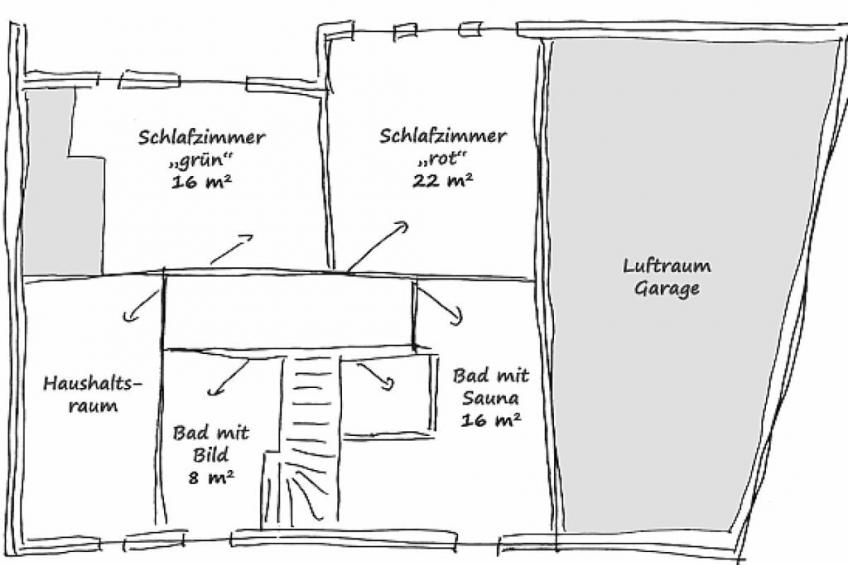 Schlafzimmer
„grün“
16 m²
Schlafzimmer
„rot“
22 m²
Luftraum
Garage
Haushalts-
raum
Bad mit
Bild
8 m²
Bad mit
Sauna
16 m²